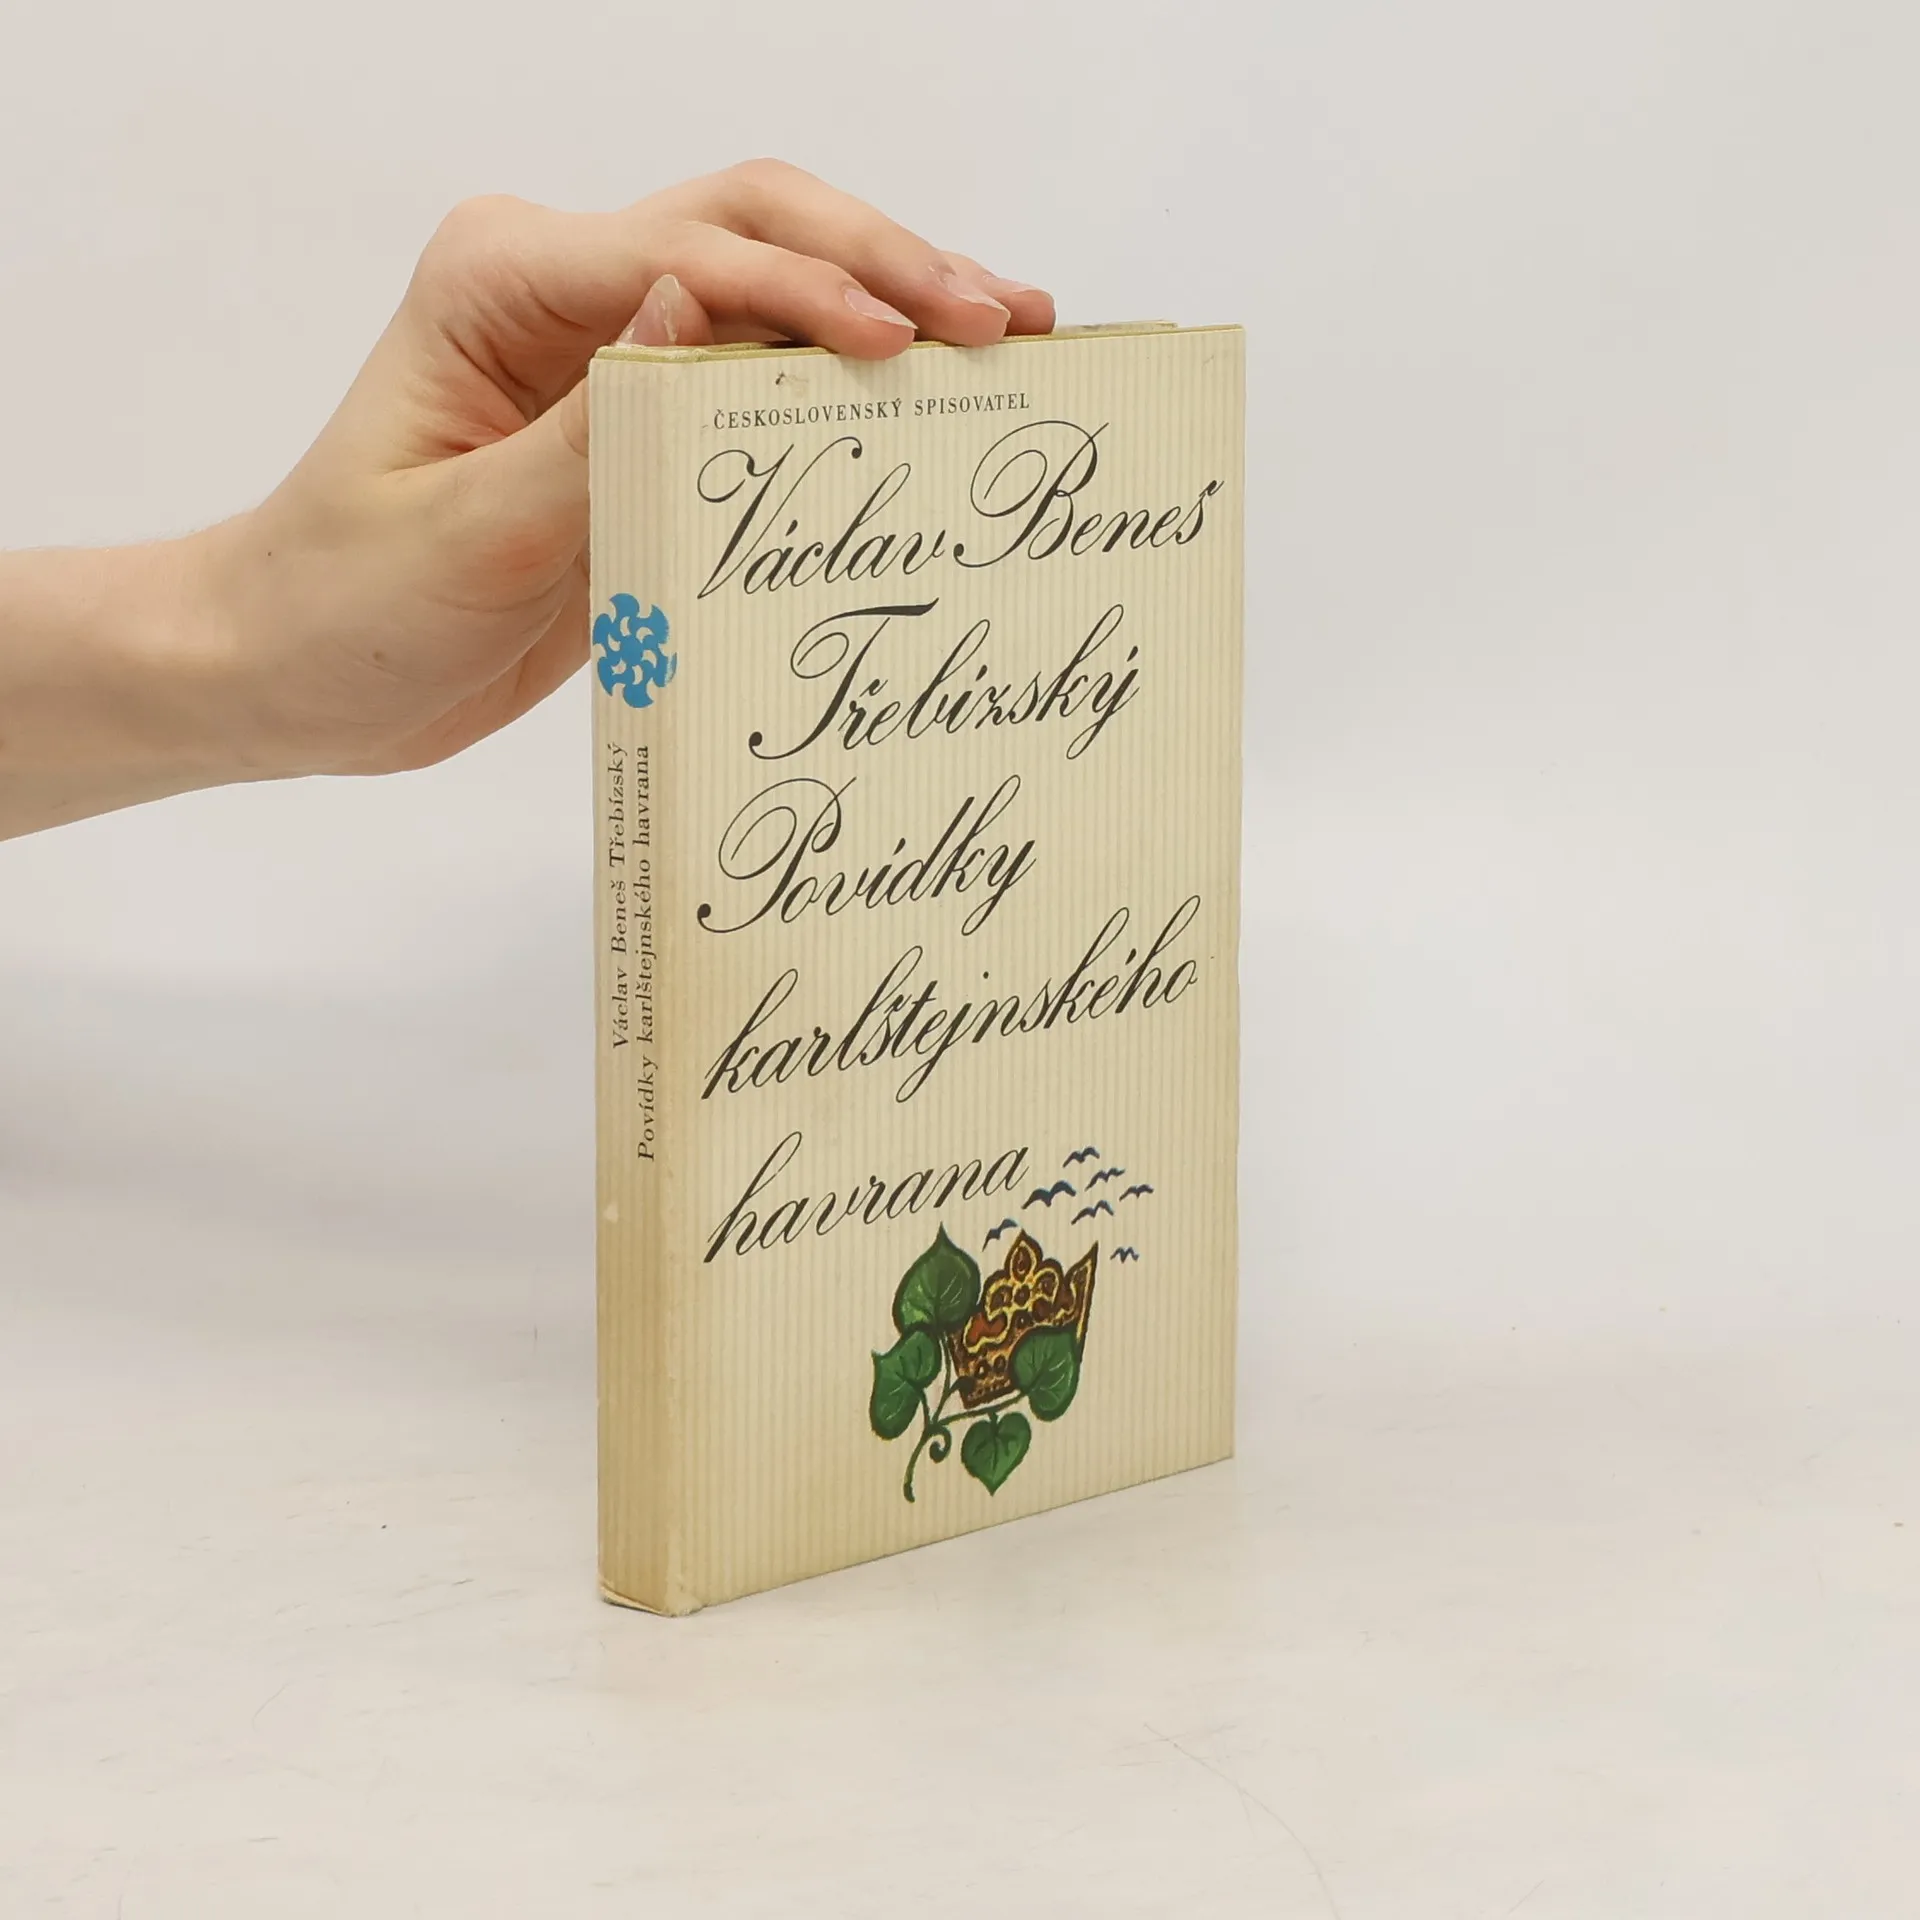 ČESKOSLOVENSKÝ SPISOVATEL
Václav Beneš
Třebízský
Povídky
karlštejnského
havrana
Václav Beneš Třebízský
Povídky karlštejnského havrana